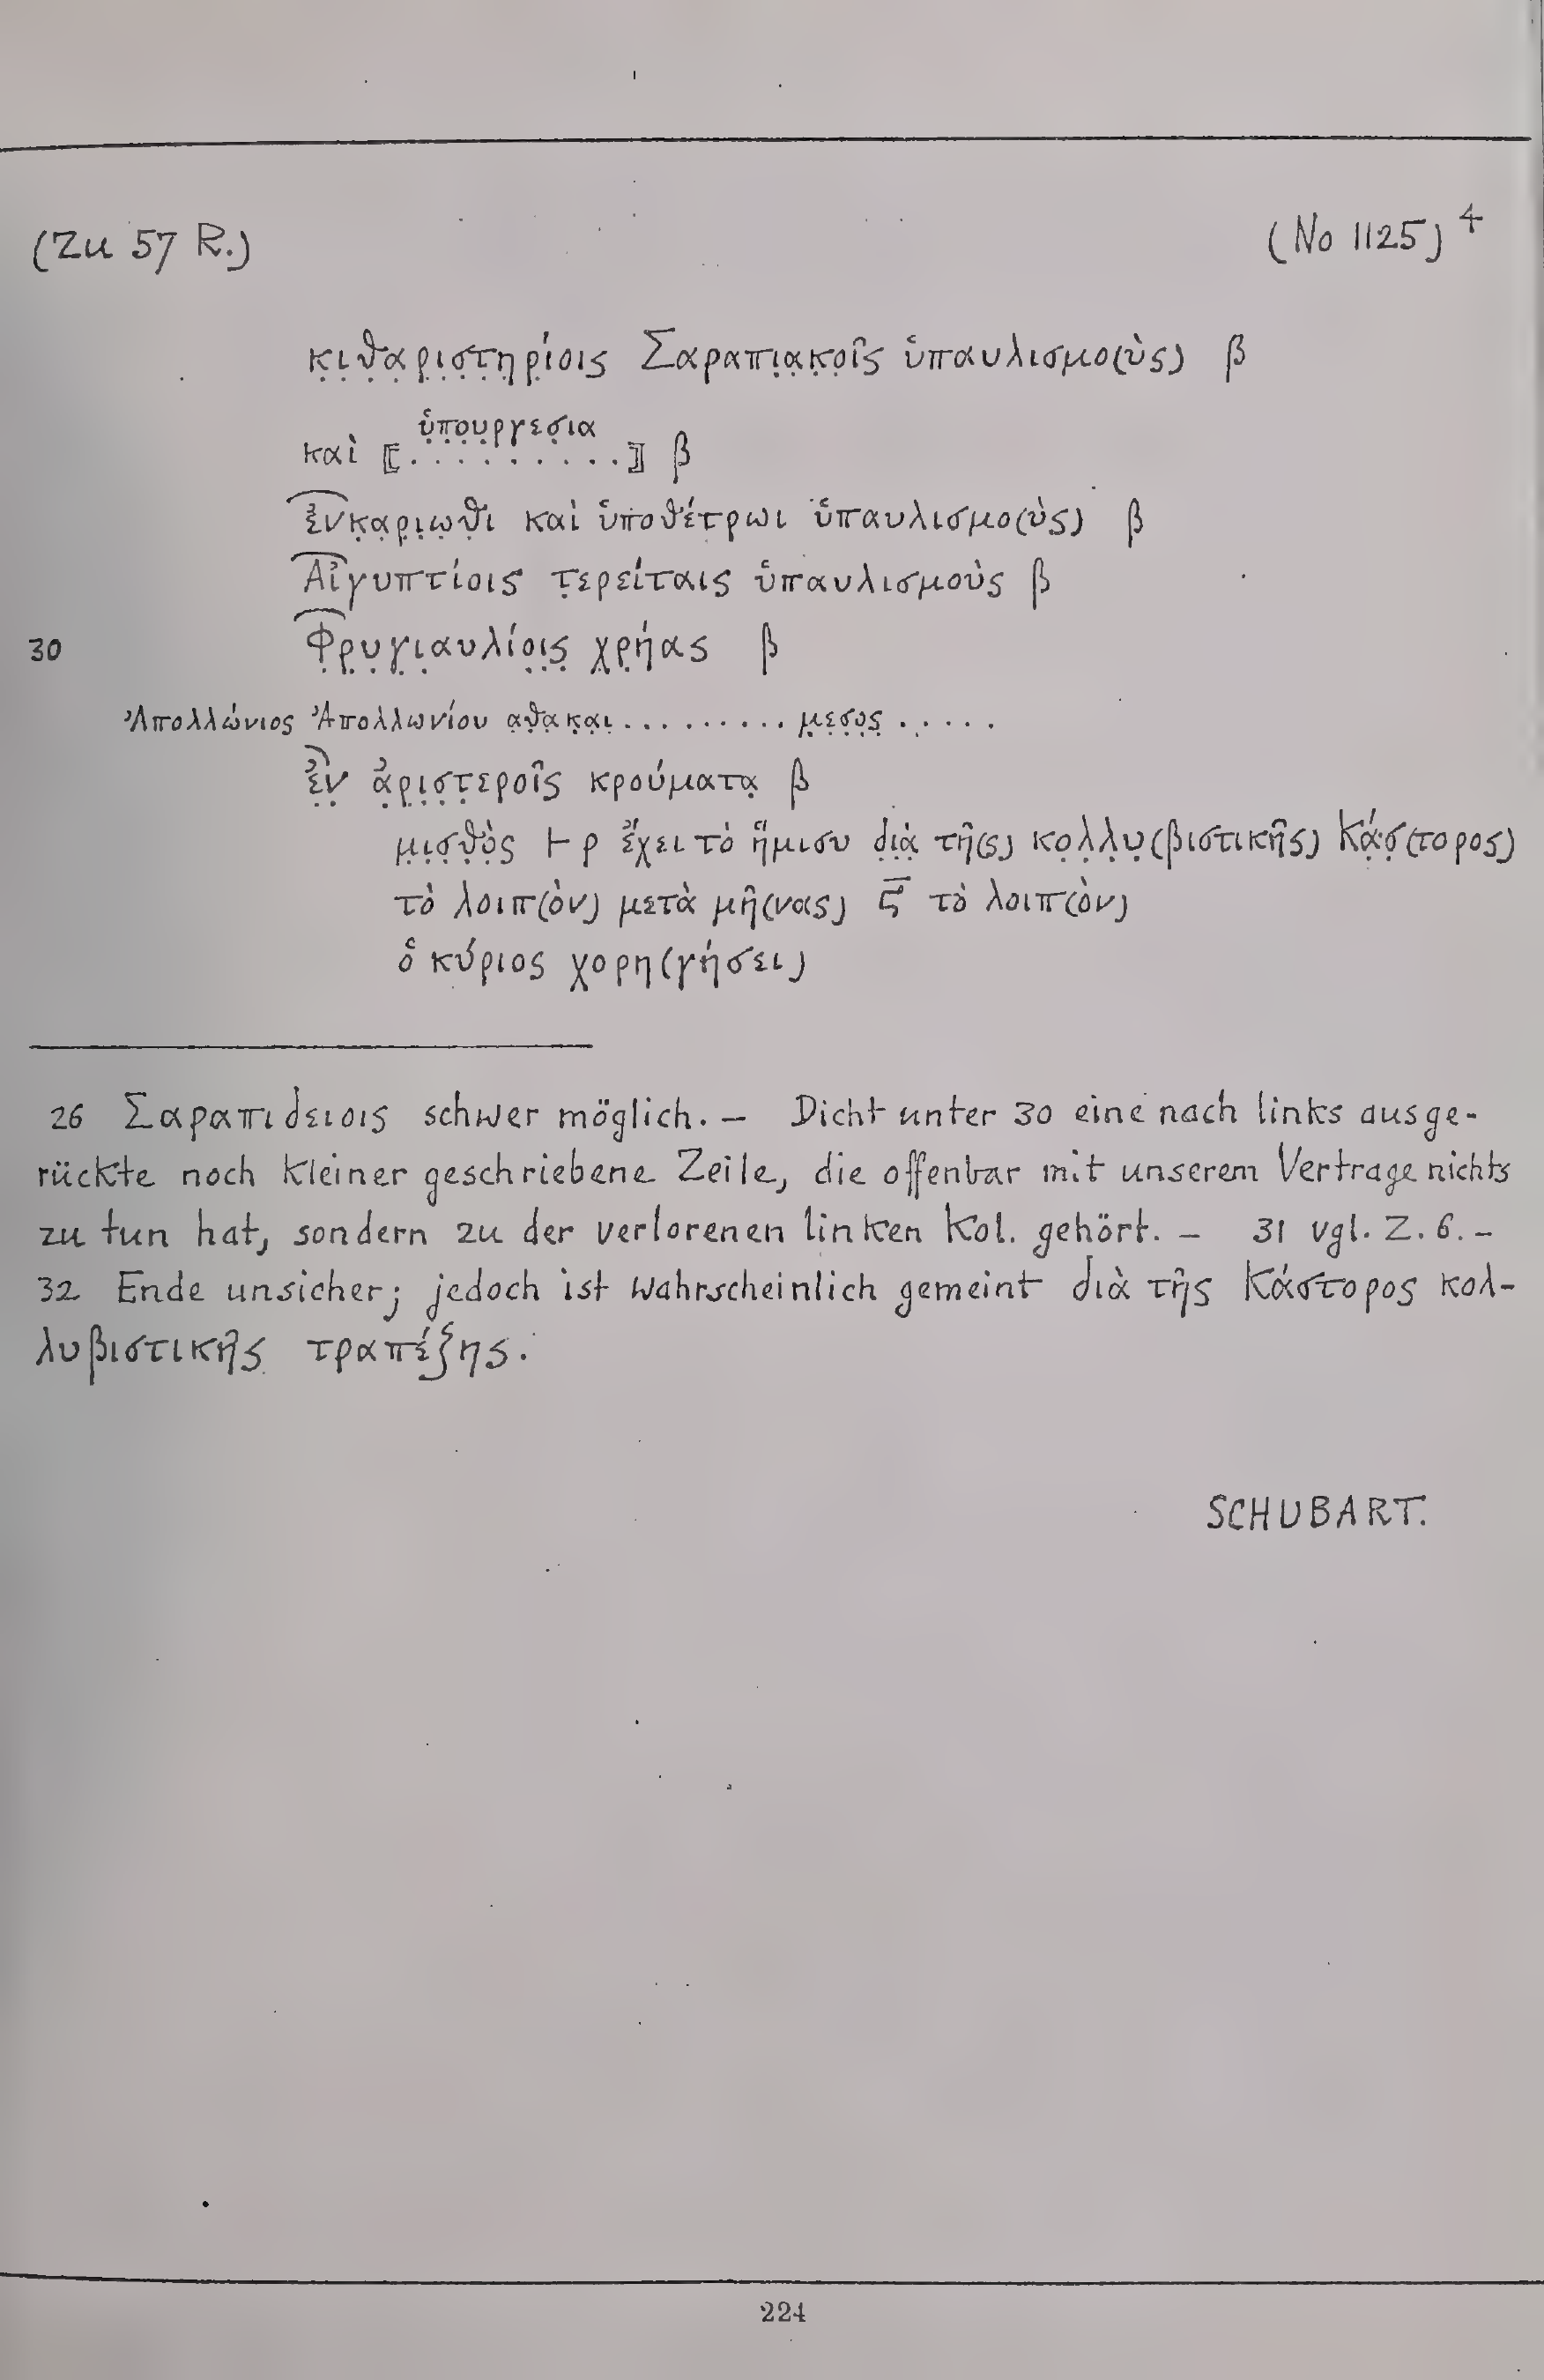 (Zu 57 R.)
(No 1125) 4
κ̣ι̣θ̣α̣ρ̣ι̣σ̣τ̣η̣ρ̣ίοις Σαραπι̣α̣κ̣ο̣ῖς ὑπαυλισμο(ὺς) β
ὑ̣π̣ο̣υ̣ρ̣γεσ̣ια
καὶ ⟦. . . . . . . . .⟧ β
ἐνκ̣α̣ρ̣ι̣ω̣θ̣ι καὶ ὑποθέτρωι ὑπαυλισμο(ὺς) β
Αἰγυπτίοις τ̣ερείταις ὑπαυλισμοὺς β
30 Φ̣ρ̣υ̣γ̣ι̣αυλίο̣ι̣ς̣ χρ̣ήας β
Ἀπολλώνιος Ἀπολλωνίου α̣θ̣α̣κ̣α̣ι̣ . . . . . . . . . μ̣ε̣σ̣ο̣ς̣ . . . . .
ἐ̣ν̣ ἀ̣ρ̣ι̣σ̣τ̣εροῖς κρούματα̣ β
μ̣ι̣σ̣θ̣ὸ̣ς ⊢ ρ ἔχει τὸ ἥμισυ δ̣ι̣ὰ̣ τῆ(ς) κ̣ο̣λ̣λ̣υ̣(βιστικῆς) Κά̣σ̣(τορος)
τὸ λοιπ(ὸν) μετὰ μῆ(νας) ϛ̅ τὸ λοιπ(ὸν)
ὁ κύριος χορη(γήσει)
26 Σαραπιδειοις schwer möglich. – Dicht unter 30 eine nach links ausge-
rückte noch kleiner geschriebene Zeile, die offenbar mit unserem Vertrage nichts
zu tun hat, sondern zu der verlorenen linken Kol. gehört. – 31 vgl. Z. 6. –
32 Ende unsicher; jedoch ist wahrscheinlich gemeint διὰ τῆς Κάστορος κολ-
λυβιστικῆς τραπέζης.
SCHUBART.
224